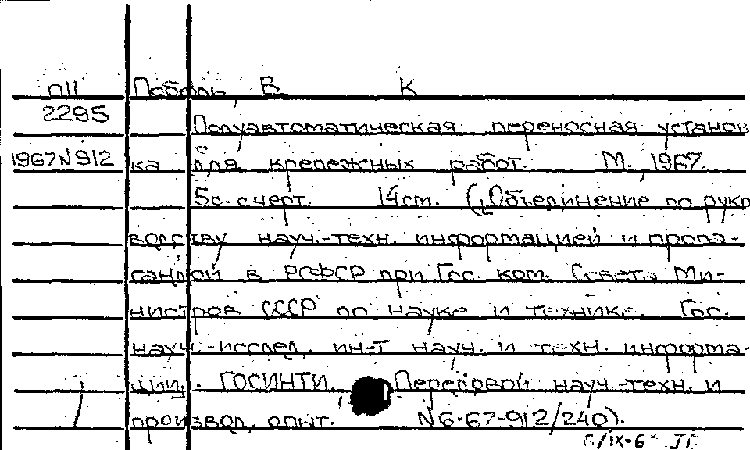 П11 Пабаль, В. К
2295
Полуавтоматическая переносная установ
1967 N912 ка для крепежных работ. М., 1967.
5с. с черт. 14 см. (Объединение по руко
водству науч.-техн. информацией и пропа-
гандой в РСФСР при Гос. ком. Совета Ми-
нистров СССР по науке и технике. Гос.
науч.-исслед. ин-т науч. и техн. информа-
ции. ГОСИНТИ. Передовой науч.-техн. и
производ. опыт. N6-67-912/240).